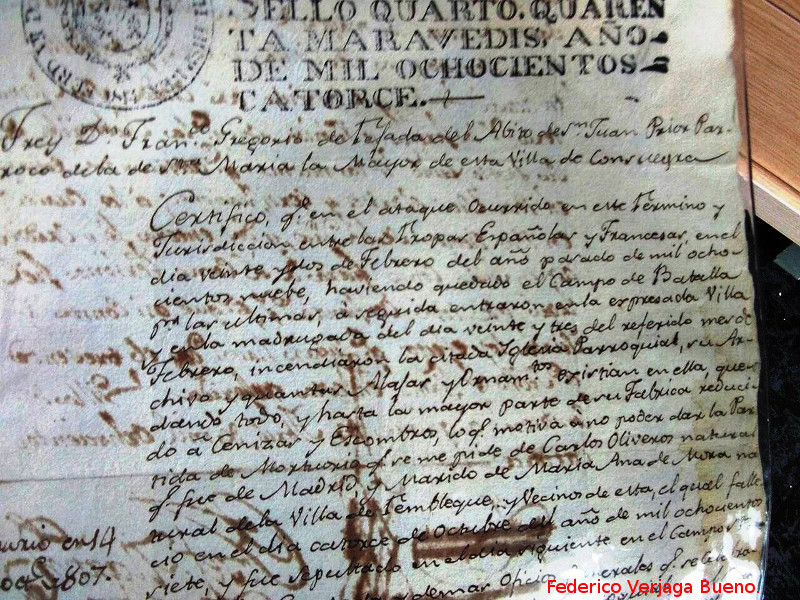 SELLO QUARTO. QUAREN
TA MARAVEDIS, AÑO
DE MIL OCHOCIENTOS
CATORCE.
Frey Dn. Franco. Gregorio de Texada del Abito de Sn. Juan Prior Par-
roco de la de Sta. Maria la Mayor de esta Villa de Consuegra
Certifico, qe. en el ataque ocurrido en este Término y
Jurisdiccion entre las Tropas Españolas y Francesas, en el
dia veinte y dos de Febrero del año pasado de mil ocho-
cientos nuebe, haviendo quedado el Campo de Batalla
pr. las ultimas, á seguida entraron en la expresada Villa
y en la madrugada del dia veinte y tres del referido mes de
Febrero, incendiaron la citada Iglesia Parroquial, su Ar-
chivo y quantas Alajas y Ornamtos. existian en ella, que-
dando todo, y hasta la mayor parte de su Fabrica reduci-
do a Cenizas y Escombros, lo qe. motiva á no poder dar la Par
tida de Mortuorio qe. se me pide de Carlos Oliveros natural
qe. fue de Madrid, y Marido de Maria Ana de Mora na
tural de la Villa de Tembleque, y Vecinos de esta, el qual falle-
cio en el dia catorce de Octubre del año de mil ochocientos
siete, y fue sepultado en el dia siguiente en el Campo Sto.
y demas Oficios qe. se celebra-
en 14
807.
Federico Verjaga Bueno